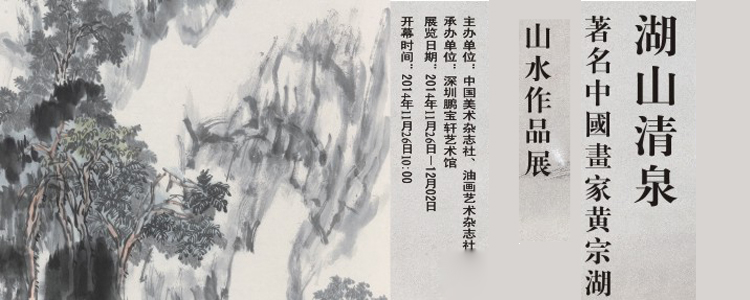 湖山清泉
著名中國畫家黄宗湖
山水作品展
主办单位：中国美术杂志社、油画艺术杂志社
承办单位：深圳鹏宝轩艺术馆
展览日期：2014年11月26日—12月02日
开幕时间：2014年11月26日10:00